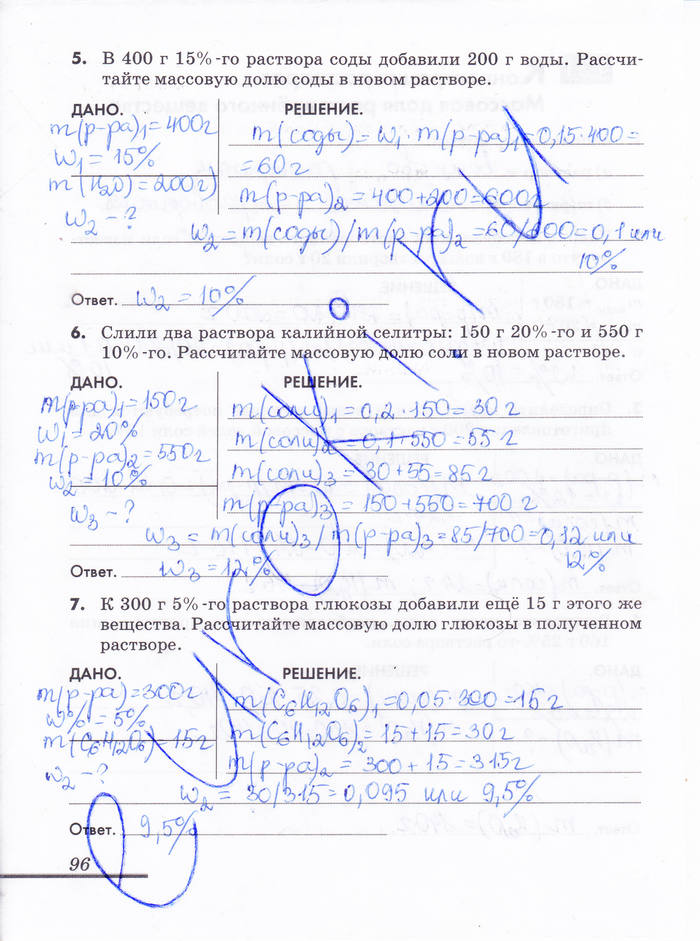 5. В 400 г 15%-го раствора соды добавили 200 г воды. Рассчи-
тайте массовую долю соды в новом растворе.
ДАНО. РЕШЕНИЕ.
m(р-ра)₁=400г m(соды)=w₁·m(р-ра)₁=0,15·400=
w₁=15% =60г
m(H₂O)=200г m(р-ра)₂=400+200=600г
w₂-? w₂=m(соды)/m(р-ра)₂=60/600=0,1 или
10%
Ответ. w₂=10%
6. Слили два раствора калийной селитры: 150 г 20%-го и 550 г
10%-го. Рассчитайте массовую долю соли в новом растворе.
ДАНО. РЕШЕНИЕ.
m(р-ра)₁=150г m(соли)₁=0,2·150=30г
w₁=20% m(соли)₂=0,1·550=55г
m(р-ра)₂=550г m(соли)₃=30+55=85г
w₂=10% m(р-ра)₃=150+550=700г
w₃-? w₃=m(соли)₃/m(р-ра)₃=85/700=0,12 или
12%
Ответ. w₃=12%
7. К 300 г 5%-го раствора глюкозы добавили ещё 15 г этого же
вещества. Рассчитайте массовую долю глюкозы в полученном
растворе.
ДАНО. РЕШЕНИЕ.
m(р-ра)=300г m(C₆H₁₂O₆)₁=0,05·300=15г
w%=5% m(C₆H₁₂O₆)₂=15+15=30г
m(C₆H₁₂O₆)=15г m(р-ра)₂=300+15=315г
w₂-? w₂=30/315=0,095 или 9,5%
Ответ. 9,5%
96